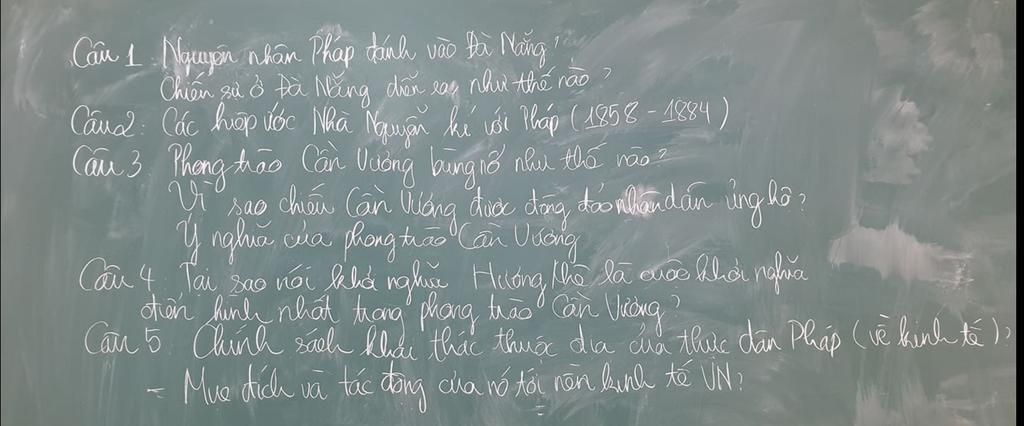 Câu 1 Nguyên nhân Pháp đánh vào Đà Nẵng?
Chiến sự ở Đà Nẵng diễn ra như thế nào?
Câu 2: Các hiệp ước Nhà Nguyễn kí với Pháp (1858 - 1884)
Câu 3 Phong trào Cần Vương bùng nổ như thế nào?
Vì sao chiếu Cần Vương được đông đảo nhân dân ủng hộ?
Ý nghĩa của phong trào Cần Vương
Câu 4: Tại sao nói khởi nghĩa Hương Khê là cuộc khởi nghĩa
điển hình nhất trong phong trào Cần Vương?
Câu 5 Chính sách khai thác thuộc địa của thực dân Pháp (về kinh tế)?
- Mục đích và tác động của nó tới nền kinh tế VN?